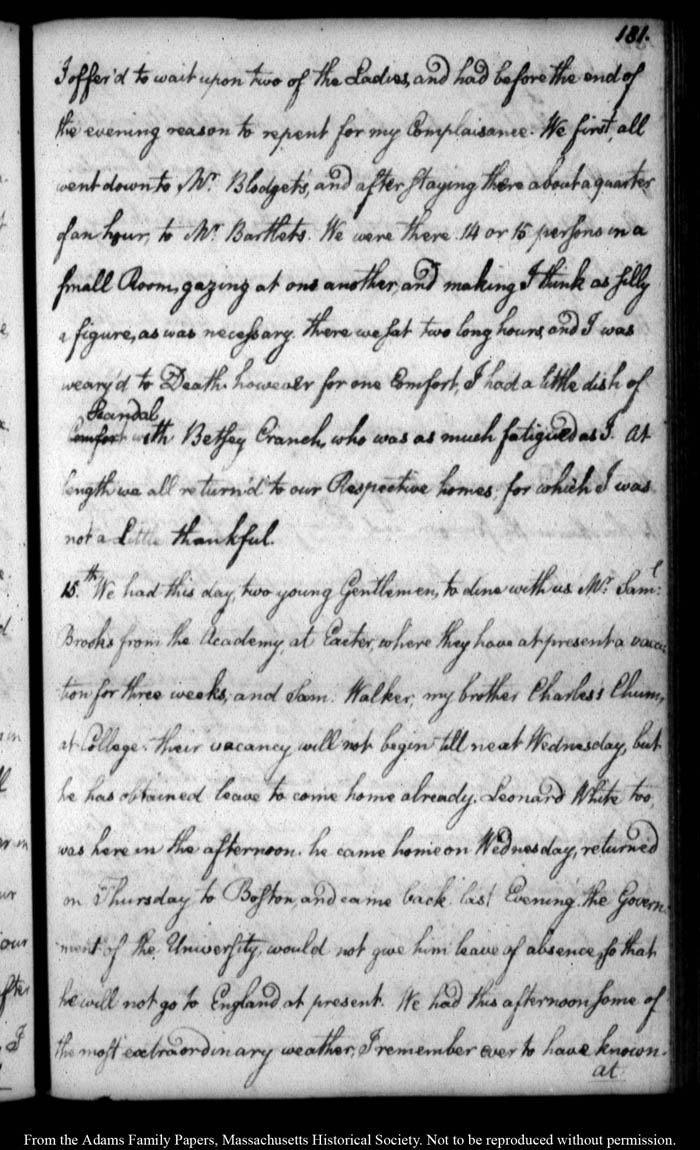 181.
I offer'd to wait upon two of the Ladies, and had before the end of
the evening reason to repent for my Complaisance. We first, all
went down to Mr. Blodget's, and after staying there about a quarter
of an hour, to Mr. Bartlets. We were there 14 or 15 persons in a
small Room, gazing at one another, and making I think as silly
a figure, as was necessary. there we sat two long hours, and I was
weary'd to Death. however for one Comfort, I had a little dish of
Scandal
Comfort with Betsey Cranch, who was as much fatigued as I. At
length we all return'd to our Respective homes; for which I was
not a Little thankful.
15.th We had this day, two young Gentlemen, to dine with us Mr. Saml:
Brooks from the Academy, at Exeter, where they have at present a vaca-
tion for three weeks; and Sam. Walker, my brother Charles's Chum,
at College. their vacancy will not begin till next Wednesday, but
he has obtained leave to come home already. Leonard White too,
was here in the afternoon. he came home on Wednesday, returned
on Thursday to Boston, and came back last Evening. the Govern-
ment of the University, would not give him leave of absence, so that
he will not go to England at present. We had this afternoon some of
the most extraordinary weather, I remember ever to have known.
at
From the Adams Family Papers, Massachusetts Historical Society. Not to be reproduced without permission.